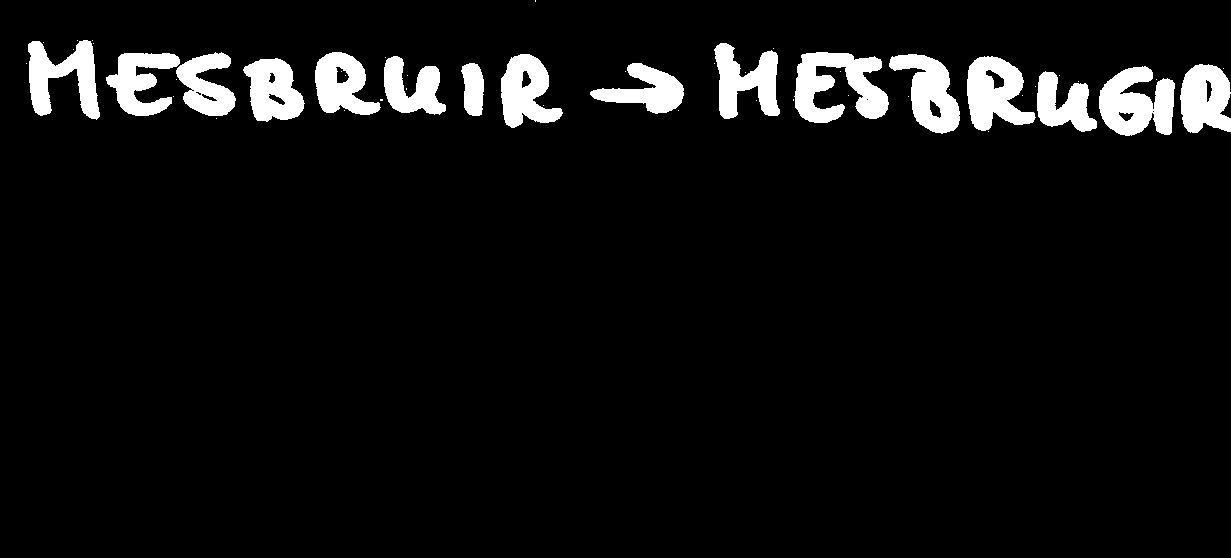 MESBRUIR → MESBRUGIR